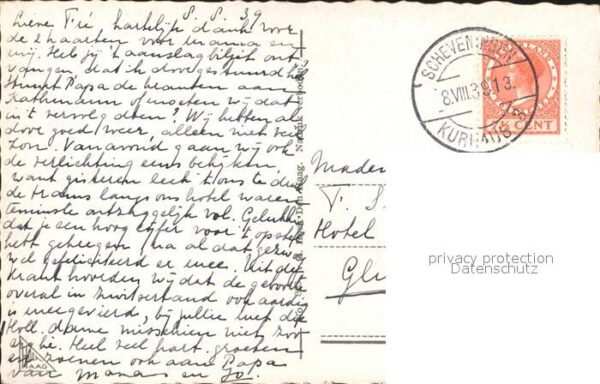 8. 8. 39
Lieve Tié hartelijk dank voor
de kaarten voor mama en
mij. Heb jij 't aanslagbiljet ont-
vangen dat ik doorgestuurd heb
Stuurt Papa de kranten aan
Kathmann of moeten wij dat
in 't vervolg doen? Wij hebben al
door goed weer, alleen niet veel
zon. Vanavond gaan wij ook
de verlichting eens bekijken,
want gisteren
de trams langs ons hotel waren
tenminste ontzaggelijk vol. Gelukkig
dat je een hoog cijfer voor 't opstel
hebt gekregen, na al dat gezwoeg
wel gefeliciteerd er mee. Uit de
krant hoorden wij dat de geboorte
overal in Zwitserland ook aardig
is meegevierd, bij jullie met de
Holl. dame misschien niet zoo
erg hé. Heel veel hart. groeten
en zoenen ook aan Papa
van mama en Jo.
SCHEVENINGEN
8.VIII.39 13.
KURHAUS
CENT
Made
T. S
Hotel
Gl
privacy protection
Datenschutz
Den Haag. Nadruk verboden
HAAG